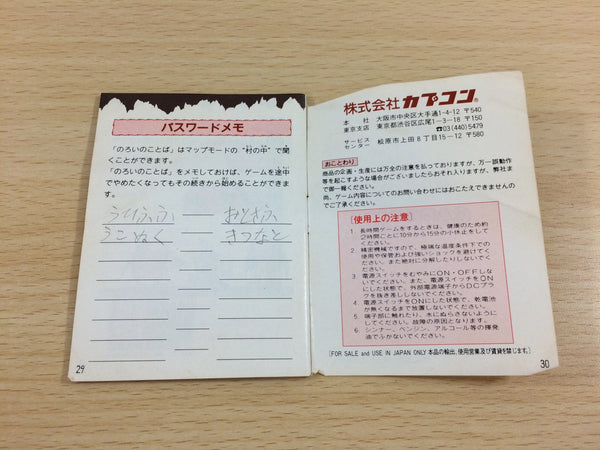 パスワードメモ
「のろいのことば」はマップモードの"村の中"で聞
くことができます。
「のろいのことば」をメモしておけば、ゲームを途中
でやめたくなってもその続きから始めることができます。
29
株式会社 カプコン®
本 社 大阪市中央区大手通1-4-12 〒540
東京支店 東京都渋谷区広尾1-3-18 〒150
☎03(440)5479
サービス
センター 松原市上田8丁目15-12 〒580
おことわり
商品の企画・生産には万全の注意を払っておりますが、万一誤動作
等を起こすような場合がございましたらおそれ入りますが、弊社ま
で御一報ください。
尚、ゲーム内容についてのお問い合わせにはおこたえできませんの
でご了承ください。
〔使用上の注意〕
1 長時間ゲームをするときは、健康のため約
2時間ごとに10分から15分の小休止をして
ください。
2 精密機械ですので、極端な温度条件下での
使用や保管および強いショックを避けてく
ださい。また絶対に分解したりしないでく
ださい。
3 電源スイッチをむやみにON・OFFしな
いでください。また、電源スイッチをON
にした状態で、外部電源端子からDCプラ
グを抜き差ししないでください。
4 電源スイッチをONにした状態で、乾電池
が無くなるまで放置しないでください。
5 端子部に触れたり、水にぬらさないように
してください。故障の原因となります。
6 シンナー、ベンジン、アルコール等の揮発
油でふかないでください。
[FOR SALE and USE IN JAPAN ONLY 本品の輸出、使用営業及び賃貸を禁じます。]
30